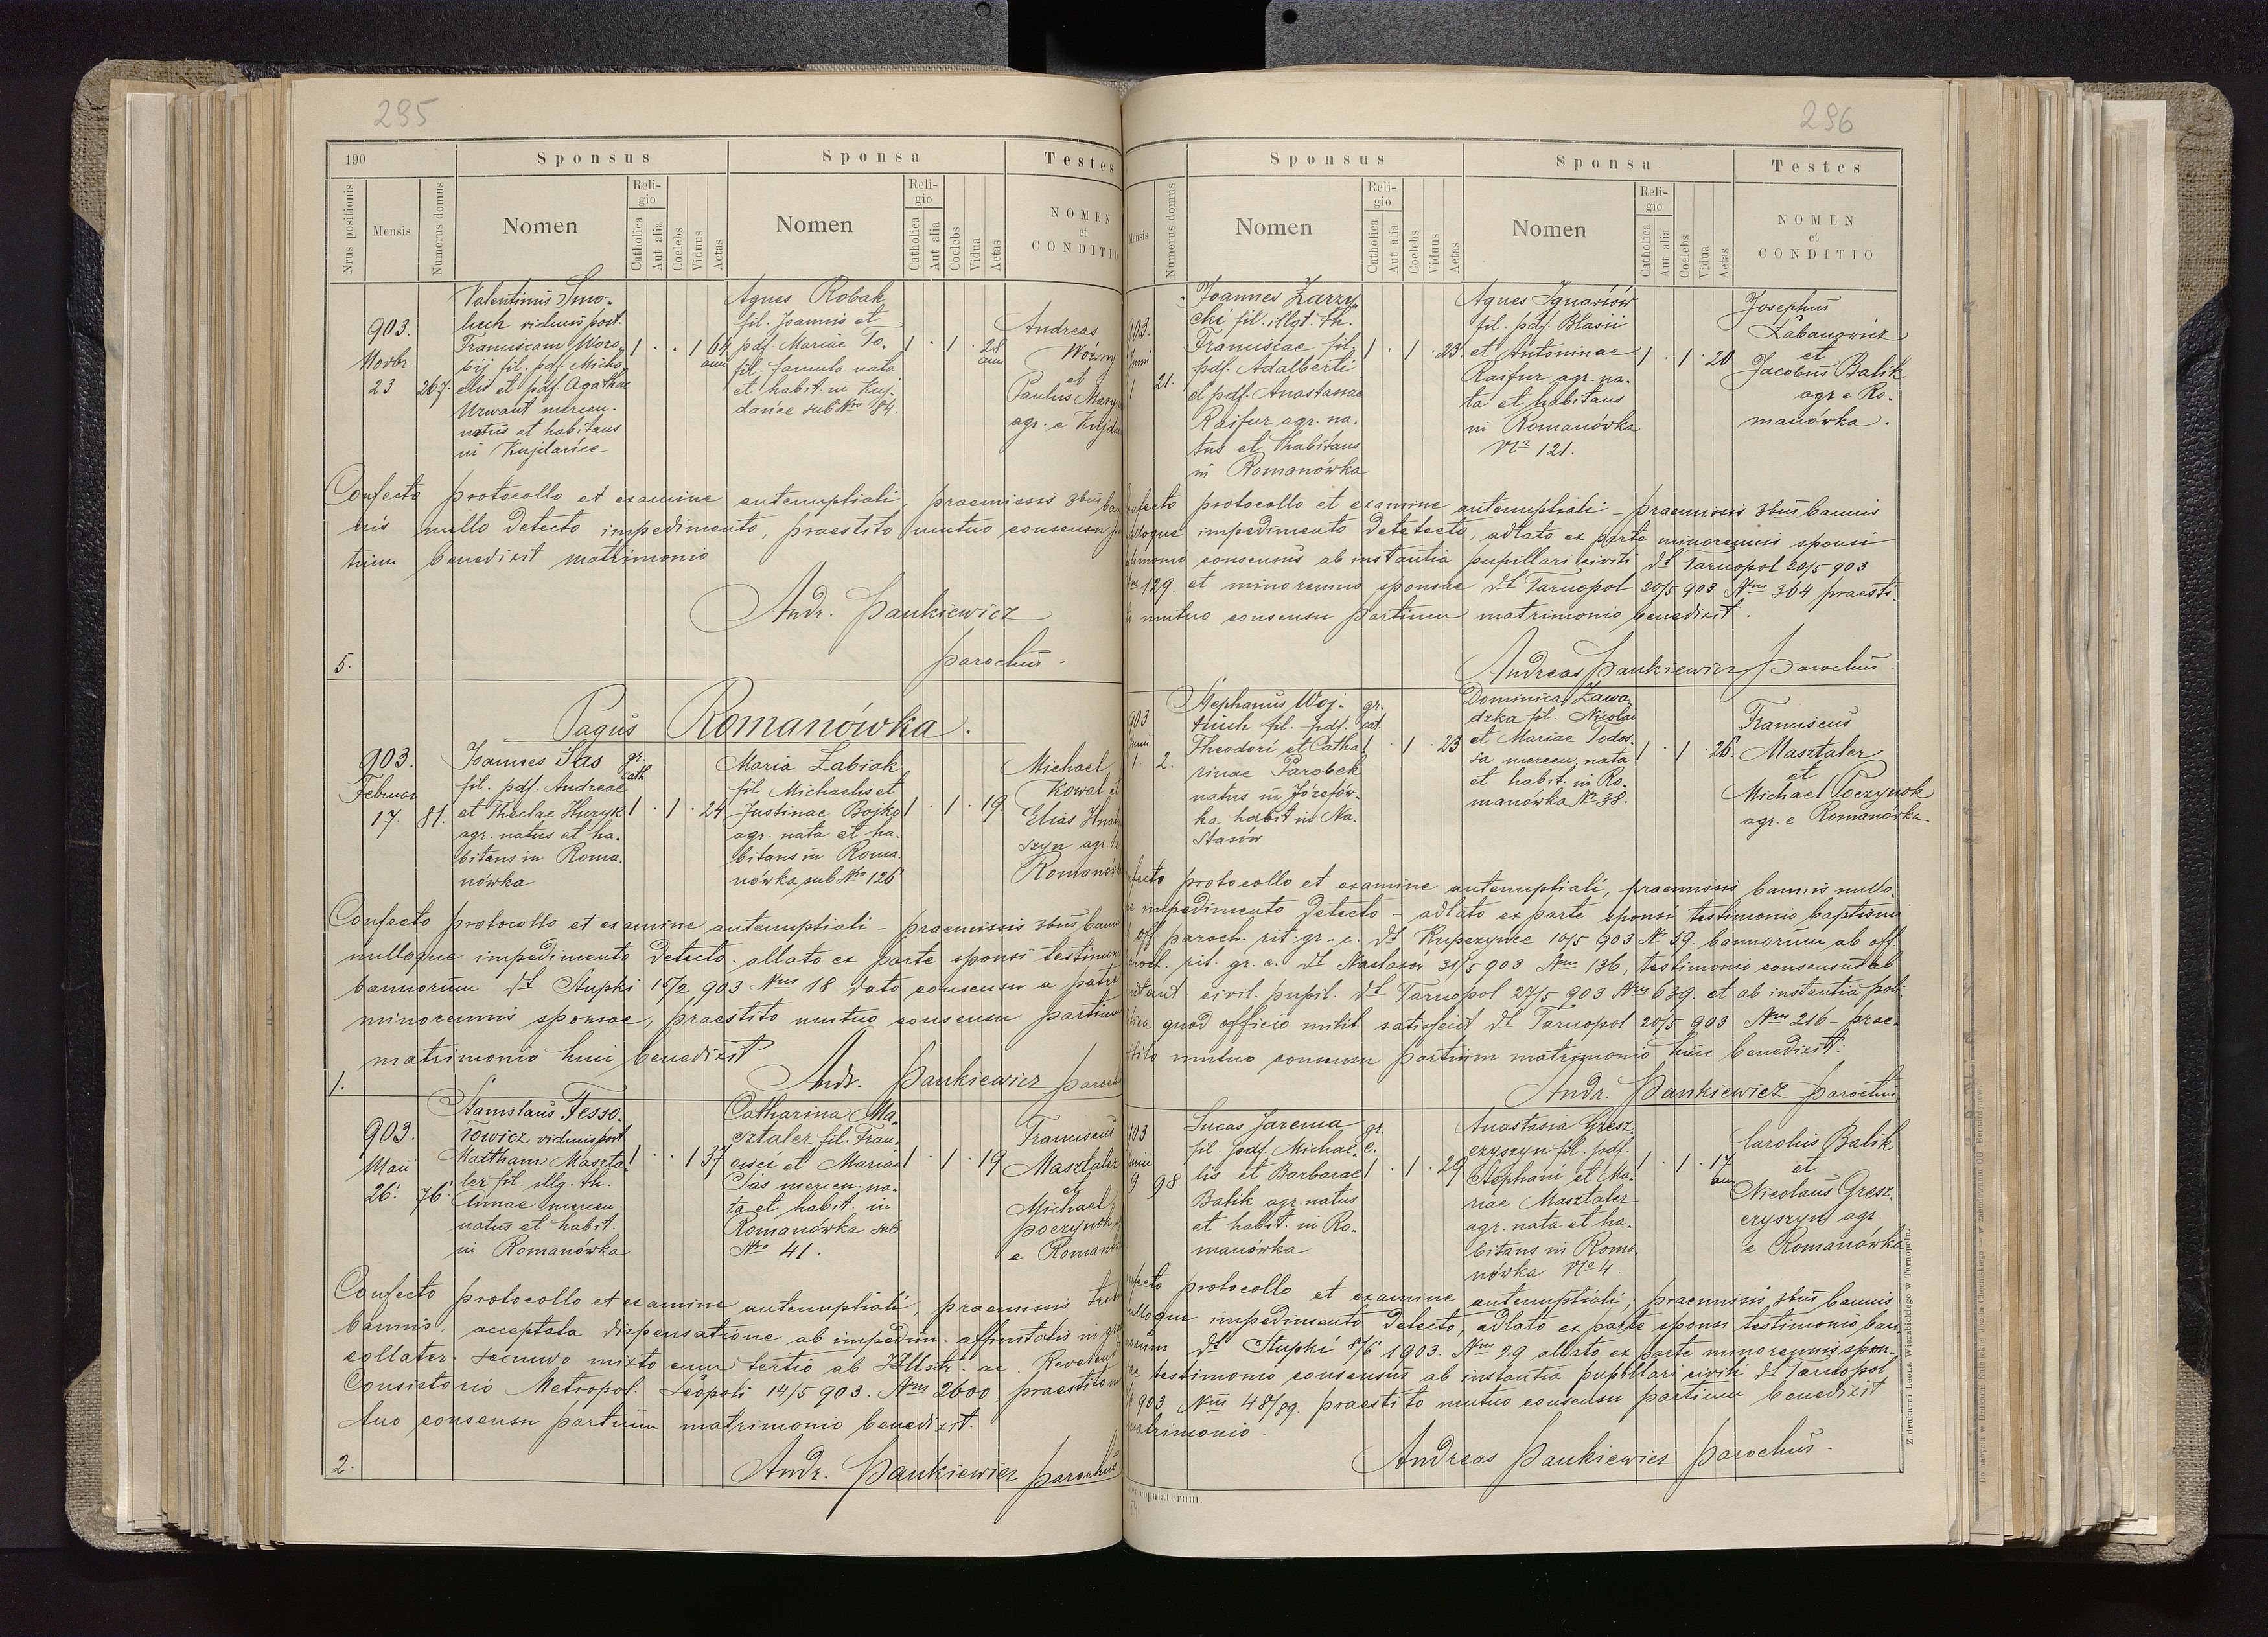 295
190
Sponsus
Sponsa
Testes
Nrus positionis
Mensis
Numerus domus
Nomen
Religio
Catholica
Aut alia
Coelebs
Viduus
Aetas
Nomen
Religio
Catholica
Aut alia
Coelebs
Vidua
Aetas
NOMEN
et
CONDITIO
903.
Novbr.
23
267.
Valentinus Smo-
luch viduus post
Franciscam Woro-
bij fil. pdf. Micha-
elis et pdf Agathae
Urwant mercen.
natus et habitans
in Kujdańce
1 . . 1 64
ann
Agnes Robak
fil. Joannis et
pdf. Mariae To.
fil. famula nata
et habit. in Kuj-
dańce sub Nro 84.
1 . 1 . 28
ann
Andreas
Woźny
et
Paulus
agr. e
Confecto protocollo et examine antenuptiali, praemissis 3bus
nis nullo detecto impedimento, praestito mutuo consensu
tium benedixit matrimonio
Andr. Pankiewicz
parochus.
5.
Pagus Romanówka.
903.
Februar
17.
81.
Joannes Stas
fil. pdf. Andreae
et Theclae Huryk
agr. natus et ha-
bitans in Roma-
nówka
gr.
cath
1 . 1 . 24
Maria Zabiak
fil Michaelis et
Justinae Bojko
agr. nata et ha-
bitans in Roma-
nówka sub Nro 126
1 . 1 . 19
Michael
Kowal et
Elias
szyn agr. e
Romanówka
Confecto protocollo et examine antenuptiali - praemissis 3bus
nulloque impedimento detecto. allato ex parte sponsi
bannorum dt Stupki 15/2 903 Nus 18 dato consensu a patre
minorennis sponsae, praestito mutuo consensu partium
matrimonio huic benedixit
Andr. Pankiewicz
1.
903.
Maii
26.
76
Stanislaus Tesso-
rowicz viduus post
Martham Maszta-
ler fil. illg. th.
Annae mercen.
natus et habit.
in Romanówka
1 . . 1 37
Catharina Ma-
sztaler fil. Fran-
cisci et Mariae
Sas mercen. na-
ta et habit. in
Romanówka sub
Nro 41.
1 . 1 . 19
Franciscus
Masztaler
et
Michael
Poczynok
e
Confecto protocollo et examine antenuptiali, praemissis
bannis, acceptata dispensatione ab impedim. affinitatis in
collater. secundo mixto cum tertio ab Illstr. ac. Reverend
Consistorio Metropol. Leopoli 14/5 903. Nus 2600 praestito
tuo consensu partium matrimonio benedixit.
Andr. Pankiewicz parochus
2.
296
Sponsus
Sponsa
Testes
Mensis
Numerus domus
Nomen
Religio
Catholica
Aut alia
Coelebs
Viduus
Aetas
Nomen
Religio
Catholica
Aut alia
Coelebs
Vidua
Aetas
NOMEN
et
CONDITIO
21.
Joannes Zarzy-
cki fil. illgt. th.
Franciscae fil.
pdf. Adalberti
et pdf. Anastasiae
Raifur agr. na-
tus et habitans
in Romanówka
1 . 1 . 23.
Agnes Ignasiów
fil. pdf. Blasii
et Antoninae
Raifur agr. na-
ta et habitans
in Romanówka
Nr 121.
1 . 1 . 20
Josephus
et
Jacobus Balik
agr e Ro-
manówka.
protocollo et examine antenuptiali - praemissis 3bus bannis
impedimento detetecto, adlato ex parte minorennis sponsi
consensus ab instantia pupillari civili dt Tarnopol 20/5 903
129. et minorennis sponsae dt Tarnopol 20/5 903 Nus 304 praesti-
mutuo consensu partium matrimonio benedixit.
Andreas Pankiewicz parochus.
2.
Stephanus Woj-
tiuch fil. pdf.
Theodori et Catha-
rinae Parobek
natus in Józefów-
ka habit in Na-
stasów
gr.
cat.
1 . 1 . 23
Dominica Zawa-
dzka fil. Nicolai
et Mariae Podos-
sa mercen. nata
et habit. in Ro-
manówka Nr 38.
1 . 1 . 26.
Franciscus
Masztaler
et
Michael Poczynok
agr. e Romanówka.
protocollo et examine antenuptiali, praemissis bannis nullo
impedimento detecto - adlato ex parte sponsi testimonio baptismi
off paroch. rit. gr. c. dt Kupczynce 10/5 903 Nr 59. bannorum ab off.
rit. gr. c. dt Nastasów 31/5 903 Nus 136, testimonio consensus ab
civil. pupil. dt Tarnopol 27/5 903 Nus 639. et ab instantia poli-
quod officio milit. satisfecit dt Tarnopol 20/5 903 Nus 216 - prae-
mutuo consensu partium matrimonio huic benedixit.
Andr. Pankiewicz parochus
9
98
Lucas Jarema
fil. pdf. Michae-
lis et Barbarae
Balik agr. natus
et habit. in Ro-
manówka
gr.
c.
1 . 1 . 29
Anastasia Gresz-
czyszyn fil. pdf.
Stephani et Ma-
riae Masztaler
agr. nata et ha-
bitans in Roma-
nówka No 4.
1 . 1 . 17
ann
Carolus Balik
et
Nicolaus Gresz-
czyszyn agr.
e Romanówka
protocollo et examine antenuptiali, praemissis 3bus bannis
impedimento detecto, adlato ex parte sponsi testimonio ban-
dt Stupki 8/6 1903. Nus 29 allato ex parte minorennis spon-
testimonio consensus ab instantia pupillari civili dt Tarnopol
903 Nus 48/89. praestito mutuo consensu partium benedixit
matrimonio.
Andreas Pankiewicz parochus.
copulatorum.
Z drukarni Leona Wierzbickiego w Tarnopolu.